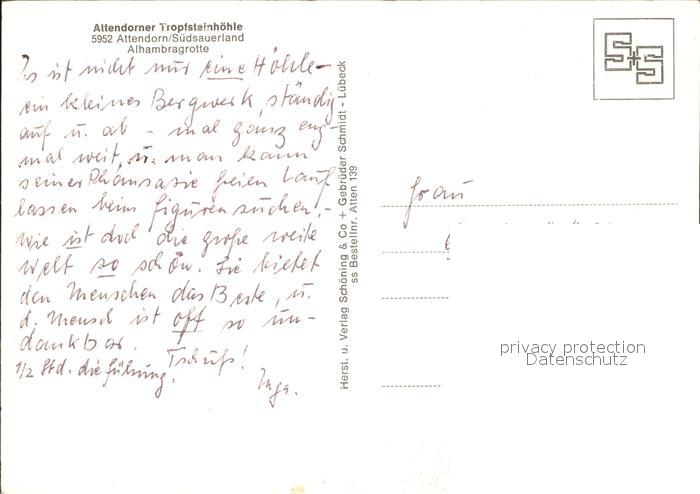 Attendorner Tropfsteinhöhle
5952 Attendorn/Südsauerland
Alhambragrotte
Es ist nicht nur eine Höhle –
ein kleines Bergwerk, ständig
auf u. ab – mal ganz eng –
mal weit, u. man kann
seiner Phantasie freien Lauf
lassen beim Figuren suchen, –
wie ist doch die große weite
Welt so schön. Sie bietet
den Menschen das Beste, u.
d. Mensch ist oft so un-
dankbar.
Tschüß!
1/2 Std. die Führung.
Inga.
Herst. u. Verlag Schöning & Co + Gebrüder Schmidt - Lübeck
ss Bestellnr. Atten 139
S+S
Frau
privacy protection
Datenschutz